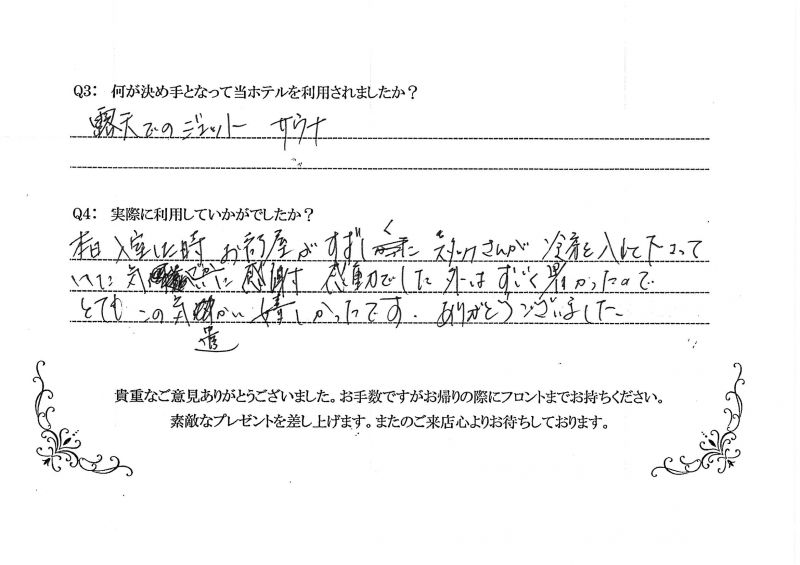 Q3: 何が決め手となって当ホテルを利用されましたか？
露天でのジェットー サウナ
Q4: 実際に利用していかがでしたか？
本日入室した時 お部屋がすずしく スタッフさんが 冷房を入れて下さって
いた気 に感謝す 感動でした 外はすごく暑かったので
とても この気遣かい 嬉しかったです. ありがとうございました
貴重なご意見ありがとうございました。お手数ですがお帰りの際にフロントまでお持ちください。
素敵なプレゼントを差し上げます。またのご来店心よりお待ちしております。